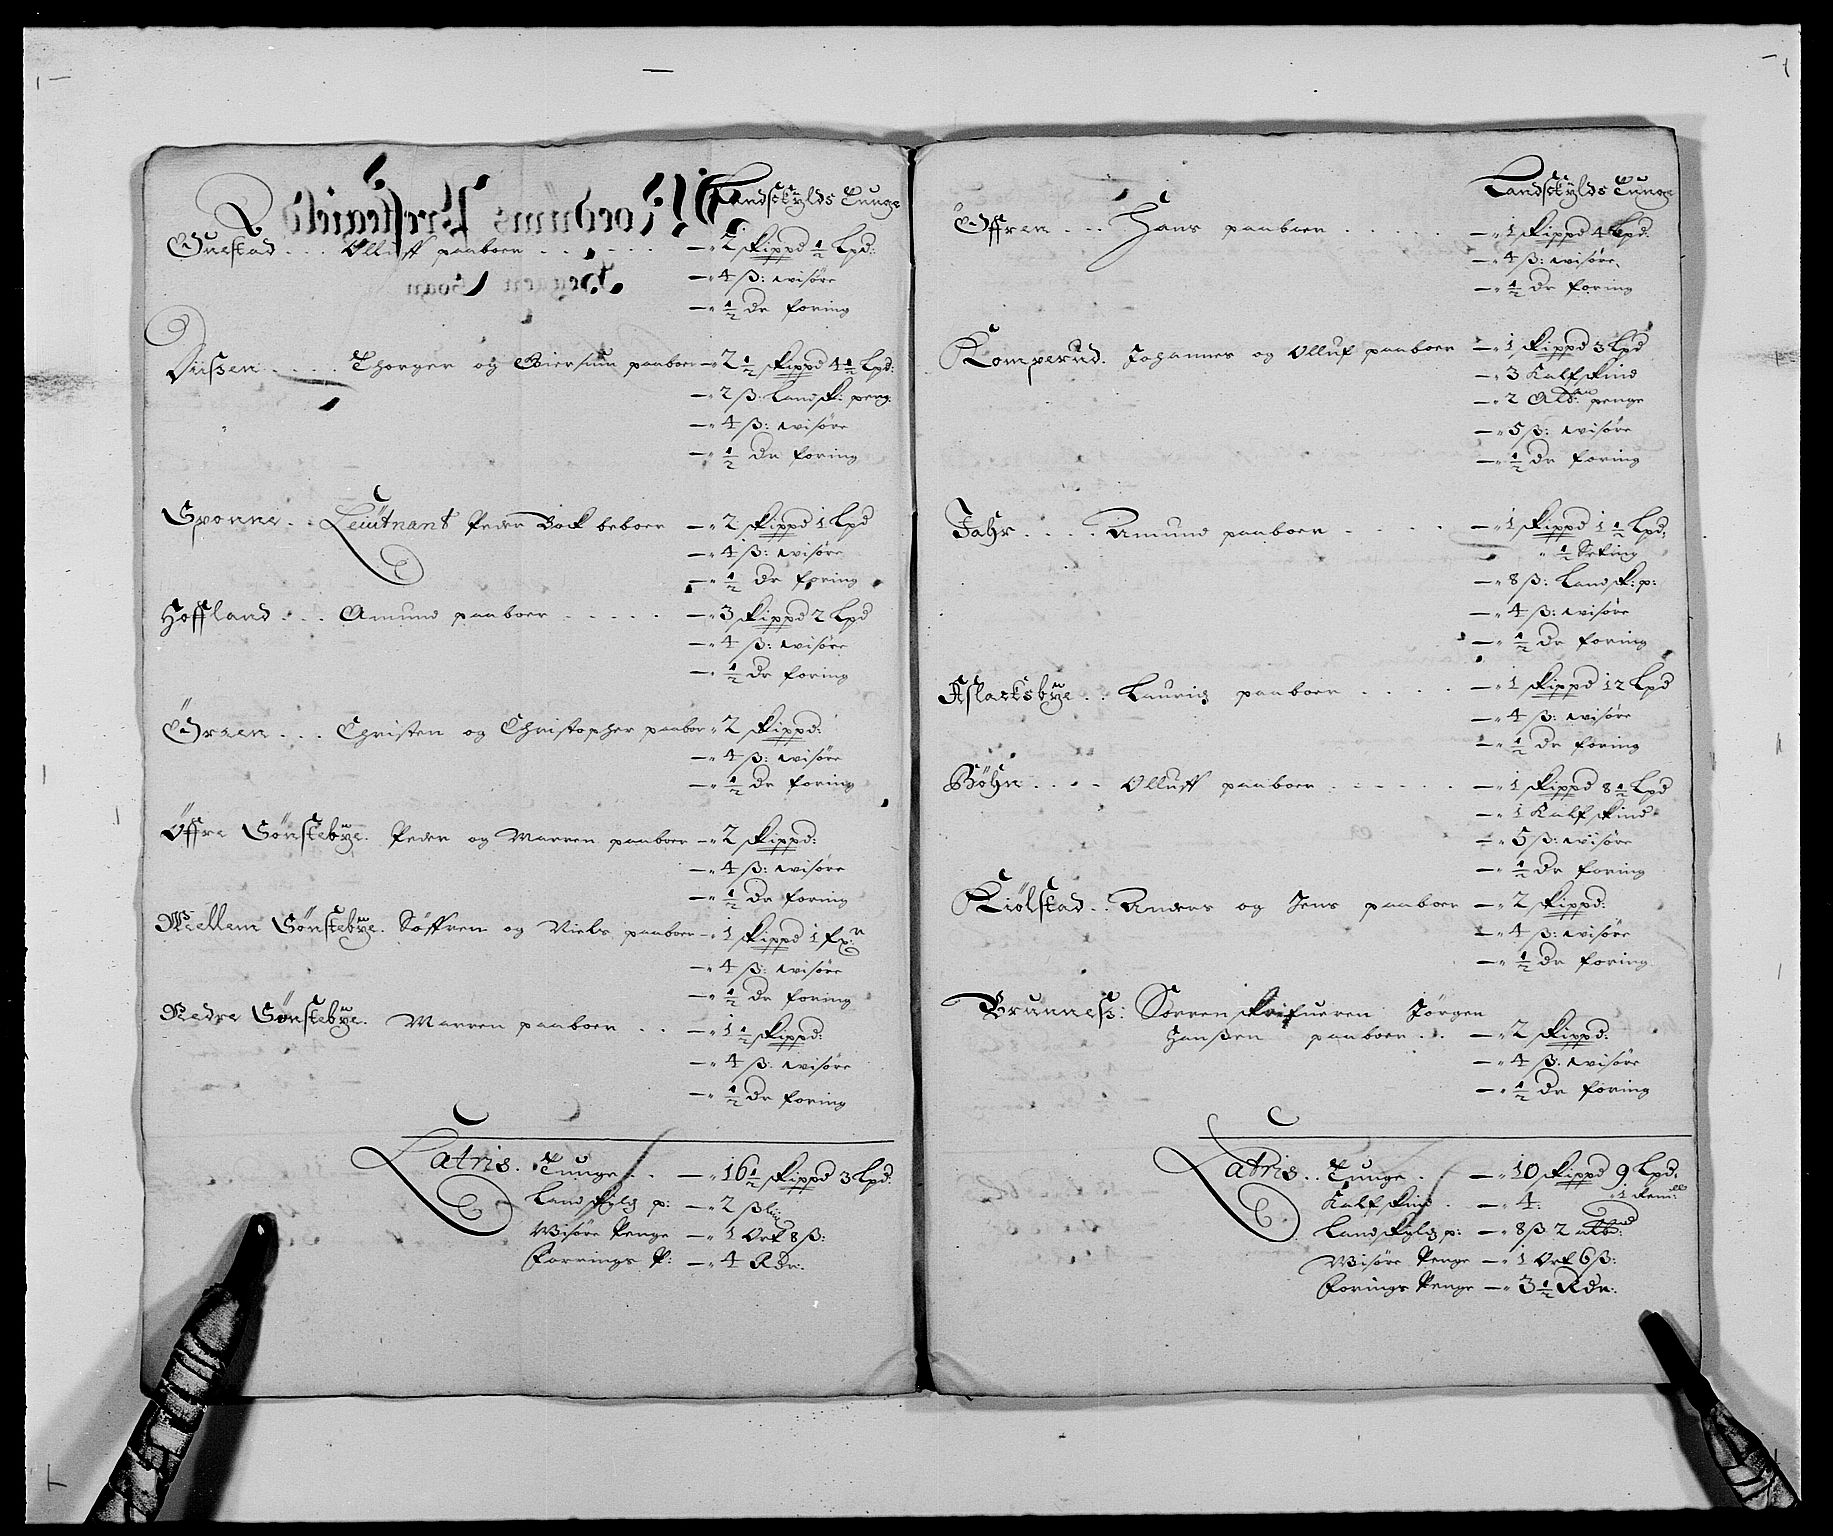 Landschylds Tunge
Guestad . . . Olluff paaboer . . . . . — " 2 skippd ½ Lpd:
— " 4 ß: wisöre
— " ½ dr foring
Siißen . . . . Thorger og Giersuun paaboer — " 2½ skippd 4½ Lpd:
— " 2 ß. Landsk: peng:
— " 4 ß: wisöre
— " ½ dr foring
Sponne . . Leiütnant Peder Bock beboer — " 2 skippd 1 Lpd
— " 4 ß: wisöre
— " ½ dr foring
Hoffland . . . Amund paaboer . . . . . — " 3 skippd 2 Lpd
— " 4 ß: wisöre
— " ½ dr foring
Christen og Christopher paaboer " 2 skippd:
— " 4 ß: wisöre
— " ½ dr foring
Öffre Sönstebÿe. Peder og Marren paaboer — " 2 skippd:
— " 4 ß: wisöre
— " ½ dr foring
Mellem Sönstebÿe. Söffren og Niels paaboer — " 1 skippd 1 fxr
— " 4 ß: wisöre
— " ½ dr foring
Nedre Sönstebÿe. Marren paaboer . . — " 1½ skippd:
— " 4 ß: wisöre
— " ½ dr foring
Latris. Tunge . . — " 16½ skippd 3 Lpd:
Landskylds p: — " 2 ß
Wisöre Penge — " 1 Ort 8 ß:
Forrings P: — " 4 Rdr:
Landschylds Tunge
Öffren . . . Hans paaboer . . . . . — " 1 skippd 4 Lpd.
— " 4 ß: wisöre
— " ½ dr foring
Komperud. Johannes og Olluf paaboer — " 1 skippd 3 Lpd
— " 3 Kalfskind
— " 2 Alb: penge
— " 5 ß: wisöre
— " ½ dr foring
Jahr . . . . Amund paaboer . . . . — " 1 skippd 1½ Lpd:
" ½ Setting
— " 8 ß: Landsk: p:
— " 4 ß: wisöre
— " ½ dr foring
Aslacksbÿe . . Lauridz paaboer . . . . — " 1 skippd 12 Lpd
— " 4 ß: wisöre
— " ½ dr foring
Böhn . . . . Olluff paaboer . . . . . . — " 1 skippd 8½ Lpd
— " 1 Kalfskind
— " 5 ß: wisöre
— " ½ dr foring
Kiölstad . . Anders og Jens paaboer — " 2 skippd:
— " 4 ß: wisöre
— " ½ dr foring
Brunneß: Sorrenskrifueren Jörgen
Hanßen paaboer . . — " 2 skippd:
— " 4 ß: wisöre
— " ½ dr foring
Latris . . Tunge . — " 10 skippd 9 Lpd:
Kalfskind . — " 4:
Landskyldz p: — " 8 ß 2 alb:
Wisöre Penge — " 1 Ort 6 ß:
Forings Penge — " 3½ Rdr: